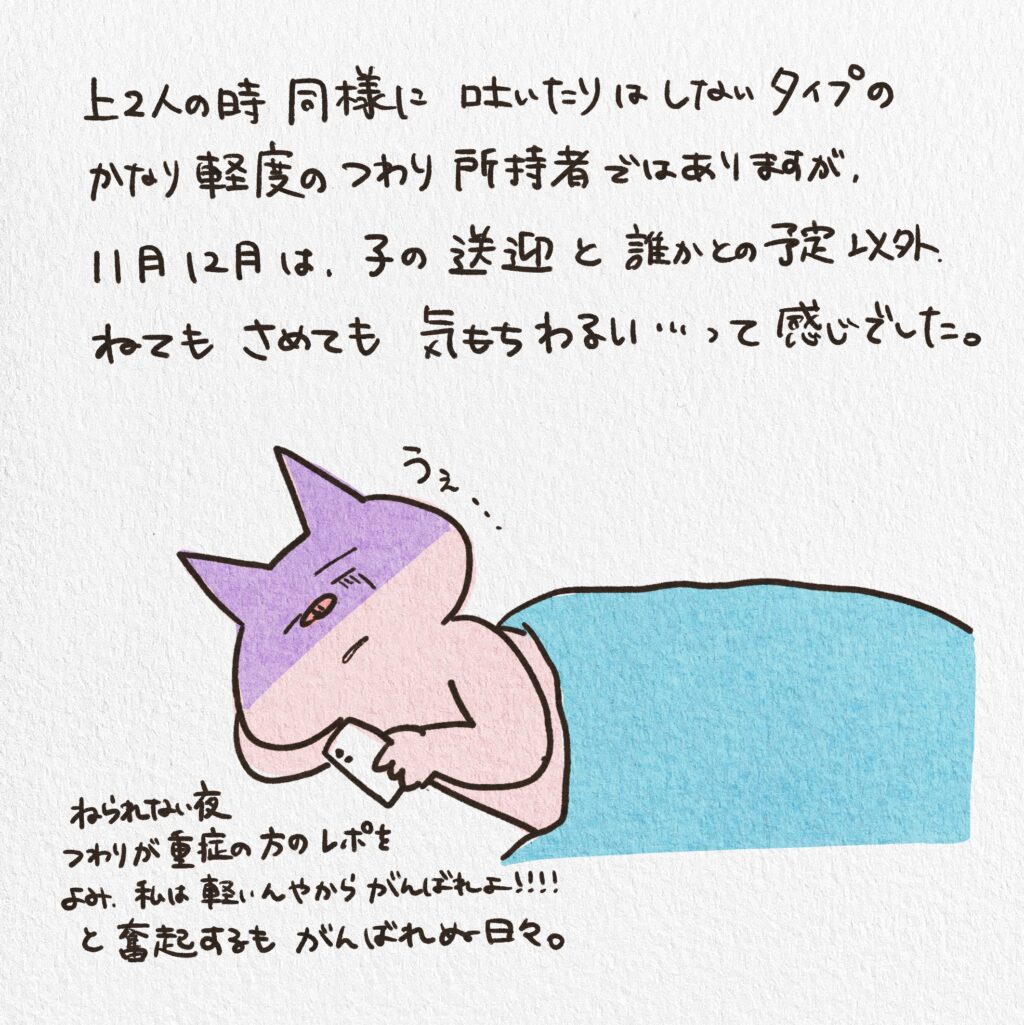 上2人の時 同様に 吐いたりは しない タイプの
かなり 軽度の つわり 所持者 ではありますが、
11月 12月 は、子の 送迎 と 誰かとの 予定 以外、
ねても さめても 気もち わるい…って 感じでした。
うぇ...
ねられない夜
つわりが 重症の 方の レポを
よみ、私は 軽いんやから がんばれよー!!!!
と 奮起するも がんばれぬ 日々。